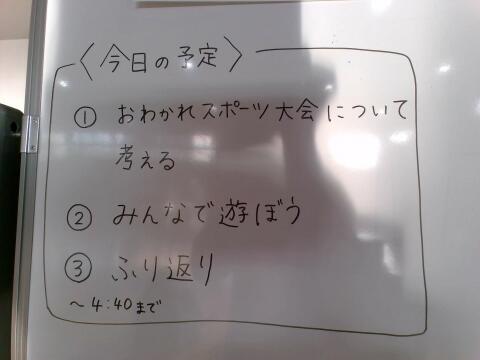 〈今日の予定〉
① おわかれスポーツ大会について
考える
② みんなで遊ぼう
③ ふり返り
～4:40まで